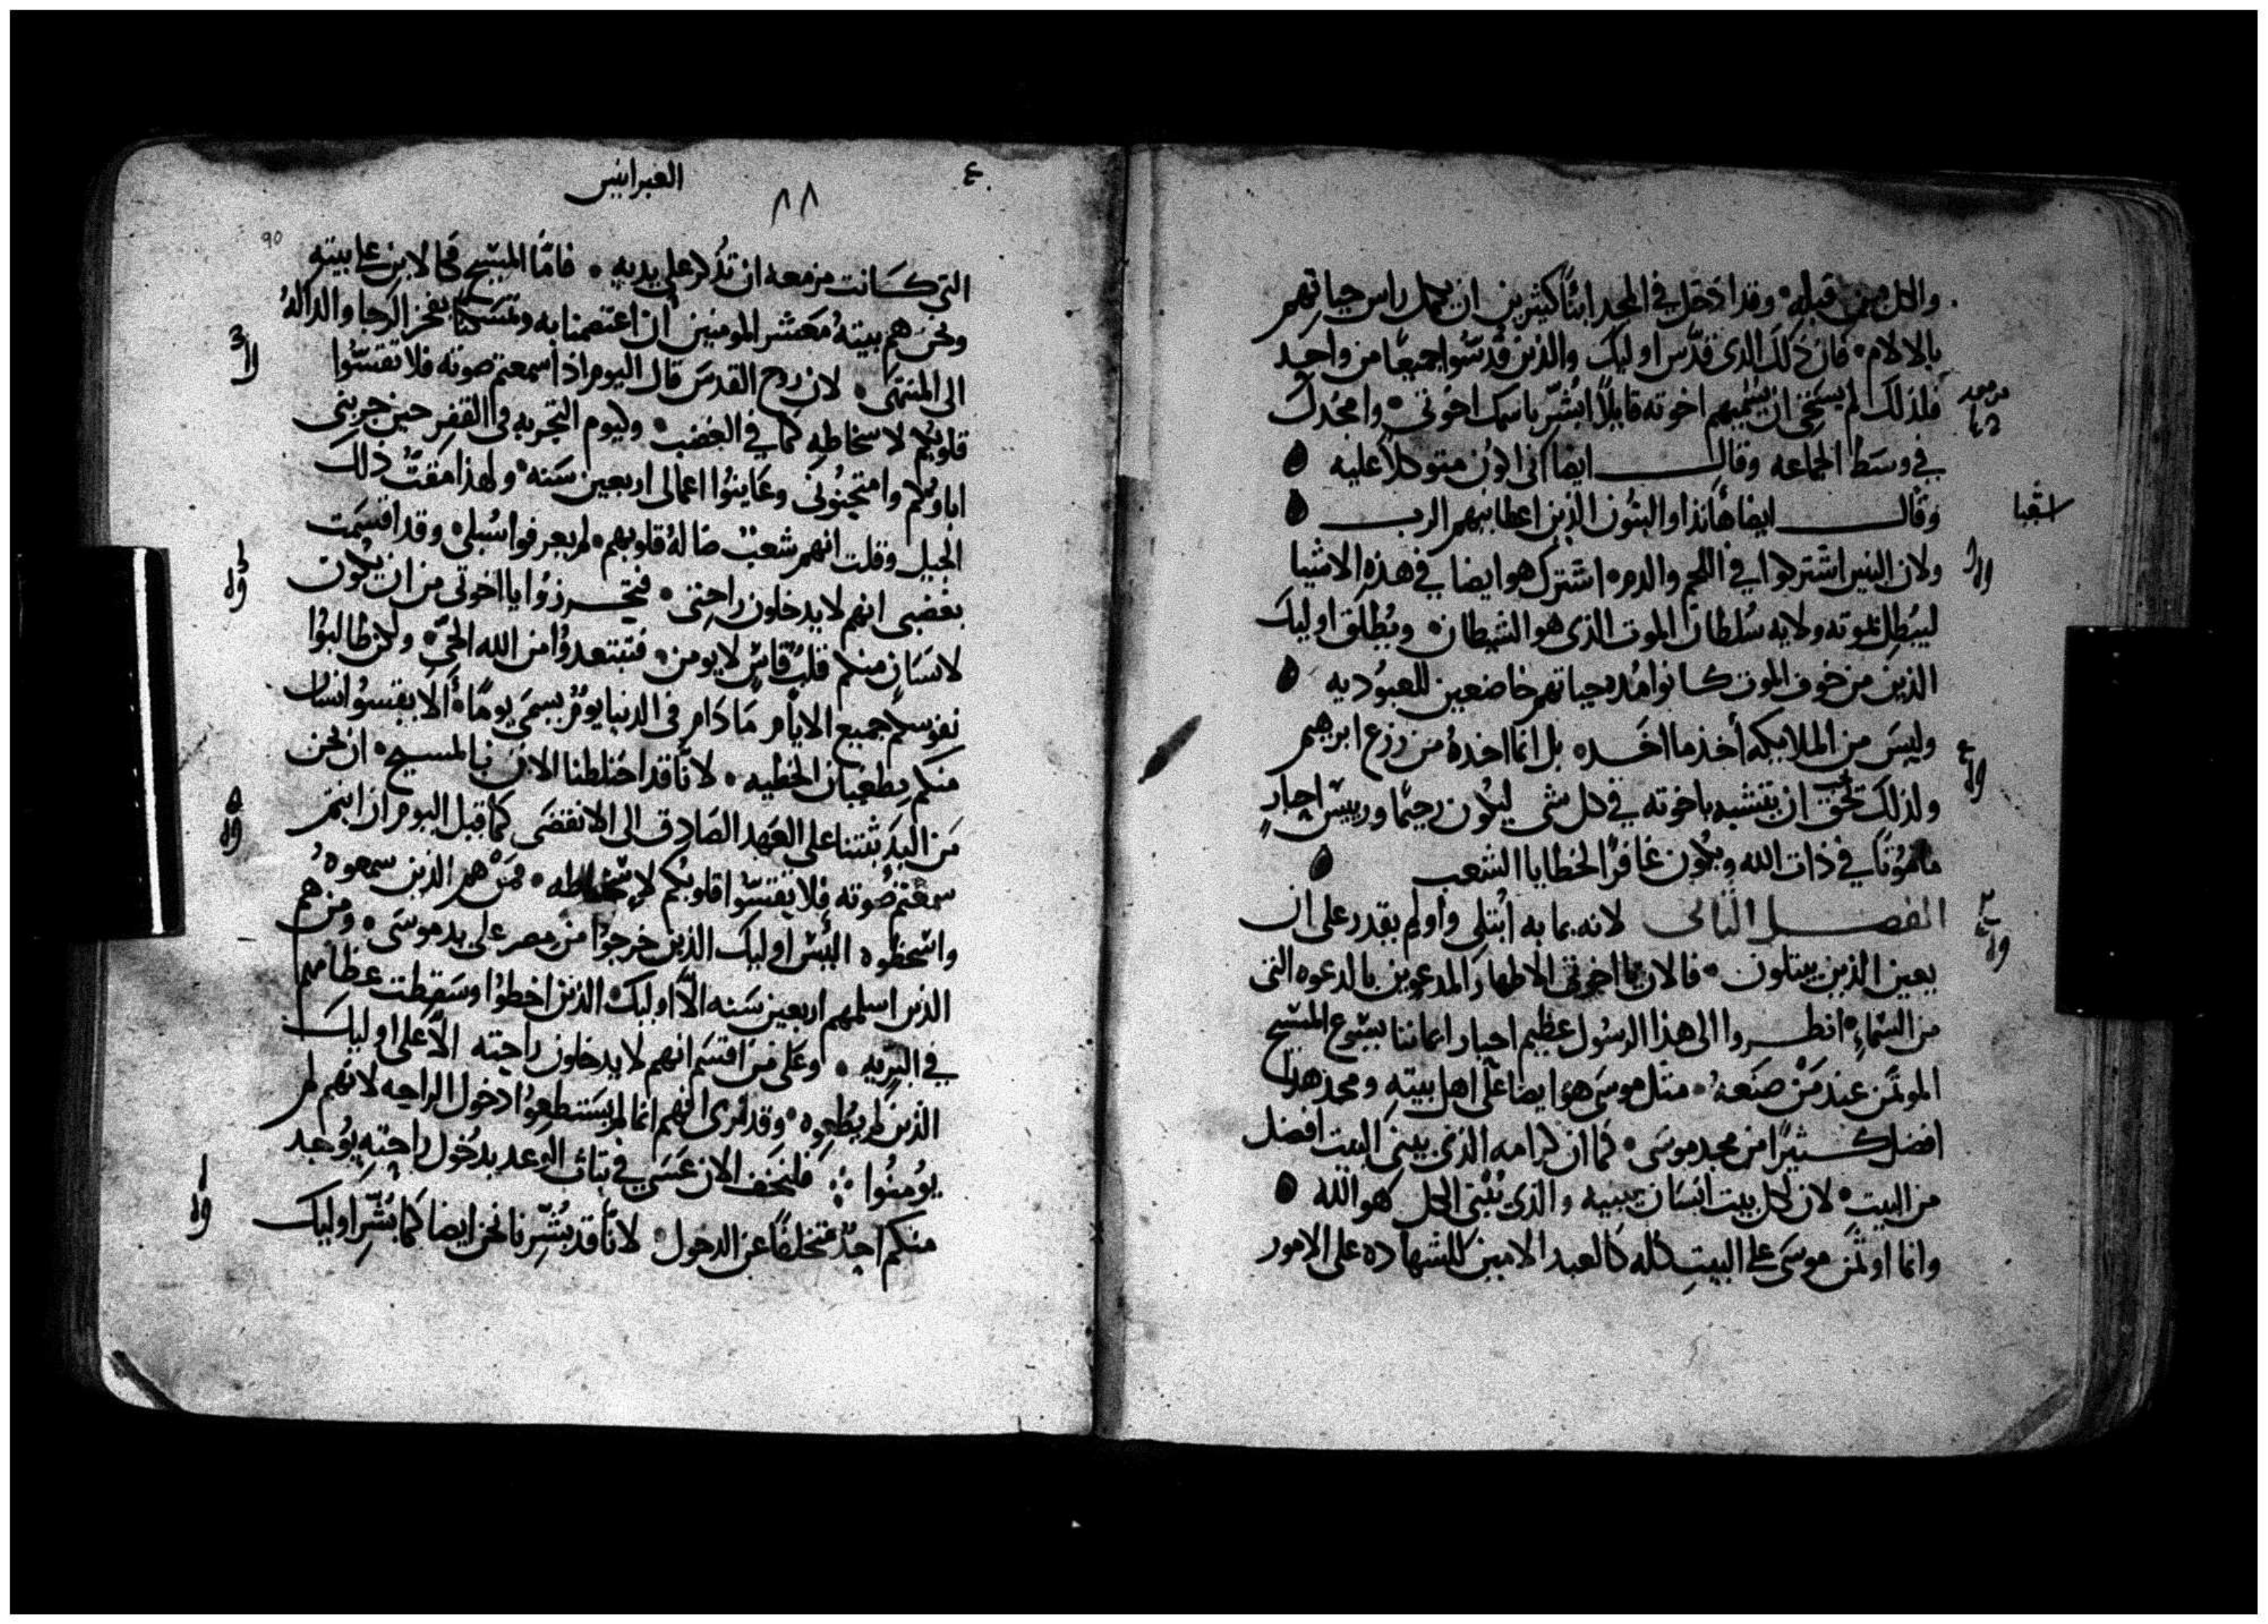 والكل من قبله وقد ادخل في المجد ابنًا كثيرين ان يكمل راس حياتهم
بالالام فان ذلك الذي قدّس اوليك والذين قُدسّوا جميعًا من واحِد
فلذلك لم يستحي ان يسميهم اخوته قايلاً ابشّر باسمك اخوتي وامجّدك
في وسَط الجماعه وقال ايضا اني اكون متوكلاً عليه
وقال ايضا هانذا والبنُون الذين اعطانيهم الرب
اشعيا
ولان البنين اشتركوا في اللحم والدم اشترك هو ايضا في هذه الاشيا
ليبُطِل بموته ولايه سُلطان الموت الذي هو الشيطان ويُطلق اوليك
الذين من خوف الموت كانوا مُده حياتهم خاضعين للعبوُديه
وليسَ من الملايكه أخذ ما اخَد بل انما اخدهُ من زرع ابرهيم
ولذلك تحقق ان يتشبه باخوته في كل شي ليكون رحيمًا ورييسَ احبارٍ
مامُونًا في ذات الله ويكون غافرًا لخطايا الشعب
الفصل الثاني لانه بما به ابُتلي واولم يقدر على ان
يعين الذين يبتلون فالان يا اخوتي الاطهار المدعوين بالدعوه التي
من السَماءِ انظروا الى هذا الرسُول عظيم احبار ايماننا يسُوع المسيح
الموتمَن عند مَنْ صنَعَهُ مثل موسَى هوَ ايضا على اهل بيتهِ ومجد هذا
افضل كثيرًا من مجد موسَى كما ان كرامه الذي يبني البيت افضل
من البيتِ لان لكل بيت انسَان يبنيه والذي بَنى الكل هو الله
وانما اوتمن موسَى على البيتِ كله كالعبد الامين للشهاده على الامور
العبرانيين
٨٨
٤
90
التي كانت مزمعه ان تُذكر على يديه فامّا المسيّح فكالابن على بيته
ونحن هم بيتهُ معَشر المومنين ان اعتصمنا به وتمسَكنا بفخر الرجا والدالهُ
الى المنتهَى لان روح القدسَ قال اليوم اذا سمعتم صوته فلا تقسّوا
قلوبكم لاسخاطه كما في الغضب وكيوم التجربه في القفر حين جربني
اباوكم وامتحِنوُني وعَاينوُا اعمالي اربعين سَنه ولهذا مقتُّ ذلك
الجيل وقلت انهم شعبُ ضالهُ قلوبهم لم يعرفوا سُبلي وقد اقسَمت
بغضبي انهم لا يدخلون راحتي فتحرزوُا يا اخوتي من ان يكون
لانسَانٍ منكم قلبُ قاسٍ لا يومن فتبتعدوُا من الله الحيّ ولكن طالبوُا
نفوسكم جميع الايام مَا دَام في الدنيا يومُ يسمَى يومًا ألا يقسوُ انسان
منكم بطغيان الخطيه لانّا قد اختلطنا الان بالمسيح ان نحن
مَن البدَ ثبتنا على العَهد الصَادِق الى الانقضَى كما قيل اليوم ان انتم
سمعَتم صُوته فلا تقسّوا قلوبكم لاسخاطه فمَنْ هم الذين سمعوهُ
واسخطوه اليُسَ اوليك الذين خرجوُا من مصر على يد موسَى ومن هم
الذين اسلمهم اربعين سَنه الاّ اوليك الذين اخطوُا وسَقطت عظامهم
في البَريه وعَلى من اقسَم انهم لا يدخلون راحته الاّ على اوليك
الذين لم يطُعوه وقد نرى انهم انما لم يسَتطيعوُا دخول الراحه لانهم لم
يوُمنُوا فلنخَف الان عسَى في ثبات الوَعد بدُخول راحته يوُجد
منكم احدٌ متخلفًا عن الدخول لانّا قد بُشّرنا نحن ايضا كما بُشّرِ اوليك